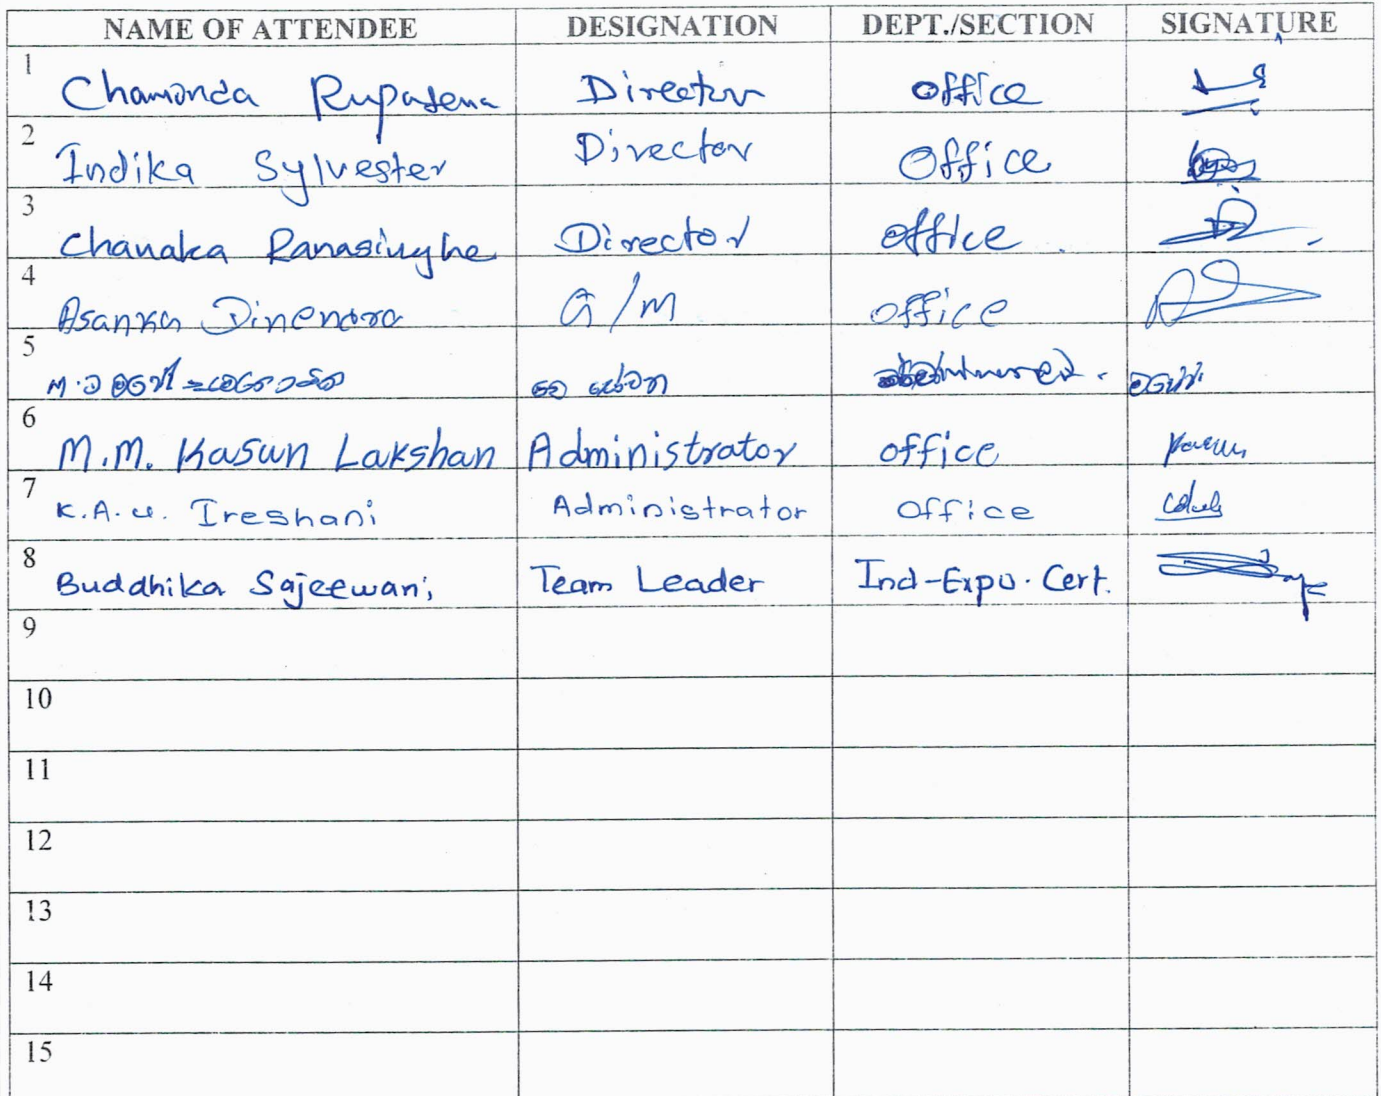 NAME OF ATTENDEE DESIGNATION DEPT./SECTION SIGNATURE
1 Chamonda Director office
2 Indika Sylvester Director Office
3 Chanaka Ranasinghe Director office
4 Asanka G/M office
5
6 M.M. Kasun Lakshan Administrator office
7 K.A.U. Ireshani Administrator Office
8 Buddhika Sajeewani Team Leader Ind-Expo. Cert.
9
10
11
12
13
14
15